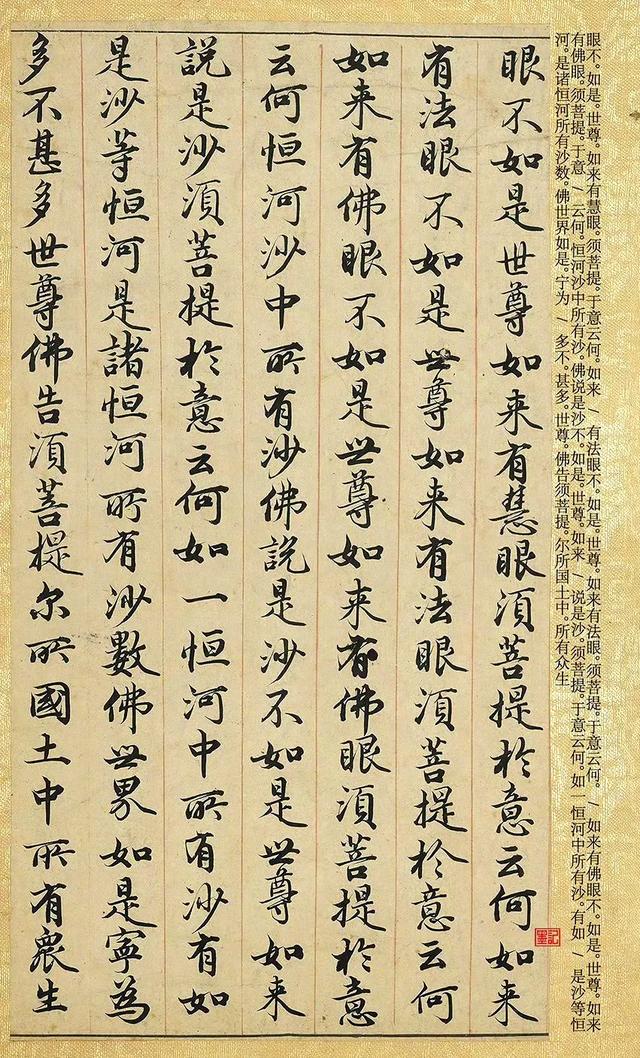 眼不。如是。世尊。如来有慧眼。须菩提。于意云何。如来 / 有法眼不。如是。世尊。如来有法眼。须菩提。于意云何。/ 如来有佛眼不。如是。世尊。如来
有佛眼。须菩提。于意 / 云何。恒河沙中所有沙。佛说是沙不。如是。世尊。如来 / 说是沙。须菩提。于意云何。如一恒河中所有沙。有如 / 是沙等恒
河。是诸恒河所有沙数。佛世界如是。宁为 / 多不。甚多。世尊。佛告须菩提。尔所国土中。所有众生
眼不如是世尊如来有慧眼須菩提於意云何如来
有法眼不如是世尊如来有法眼須菩提於意云何
如来有佛眼不如是世尊如来有佛眼須菩提於意
云何恒河沙中所有沙佛說是沙不如是世尊如来
說是沙須菩提於意云何如一恒河中所有沙有如
是沙等恒河是諸恒河所有沙數佛世界如是寧為
多不甚多世尊佛告須菩提尔所國土中所有衆生